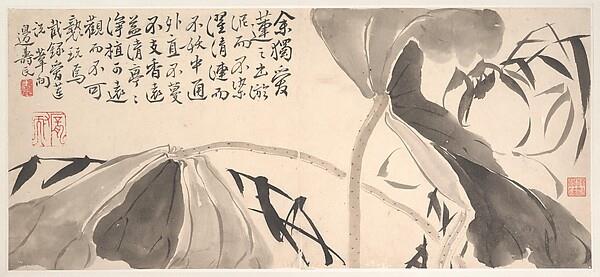 余獨愛
蓮之出淤
泥而不染
濯清漣而
不妖中通
外直不蔓
不支香遠
益清亭〻
淨植可遠
觀而不可
褻玩焉
節錄愛蓮
說葦間
邊壽民